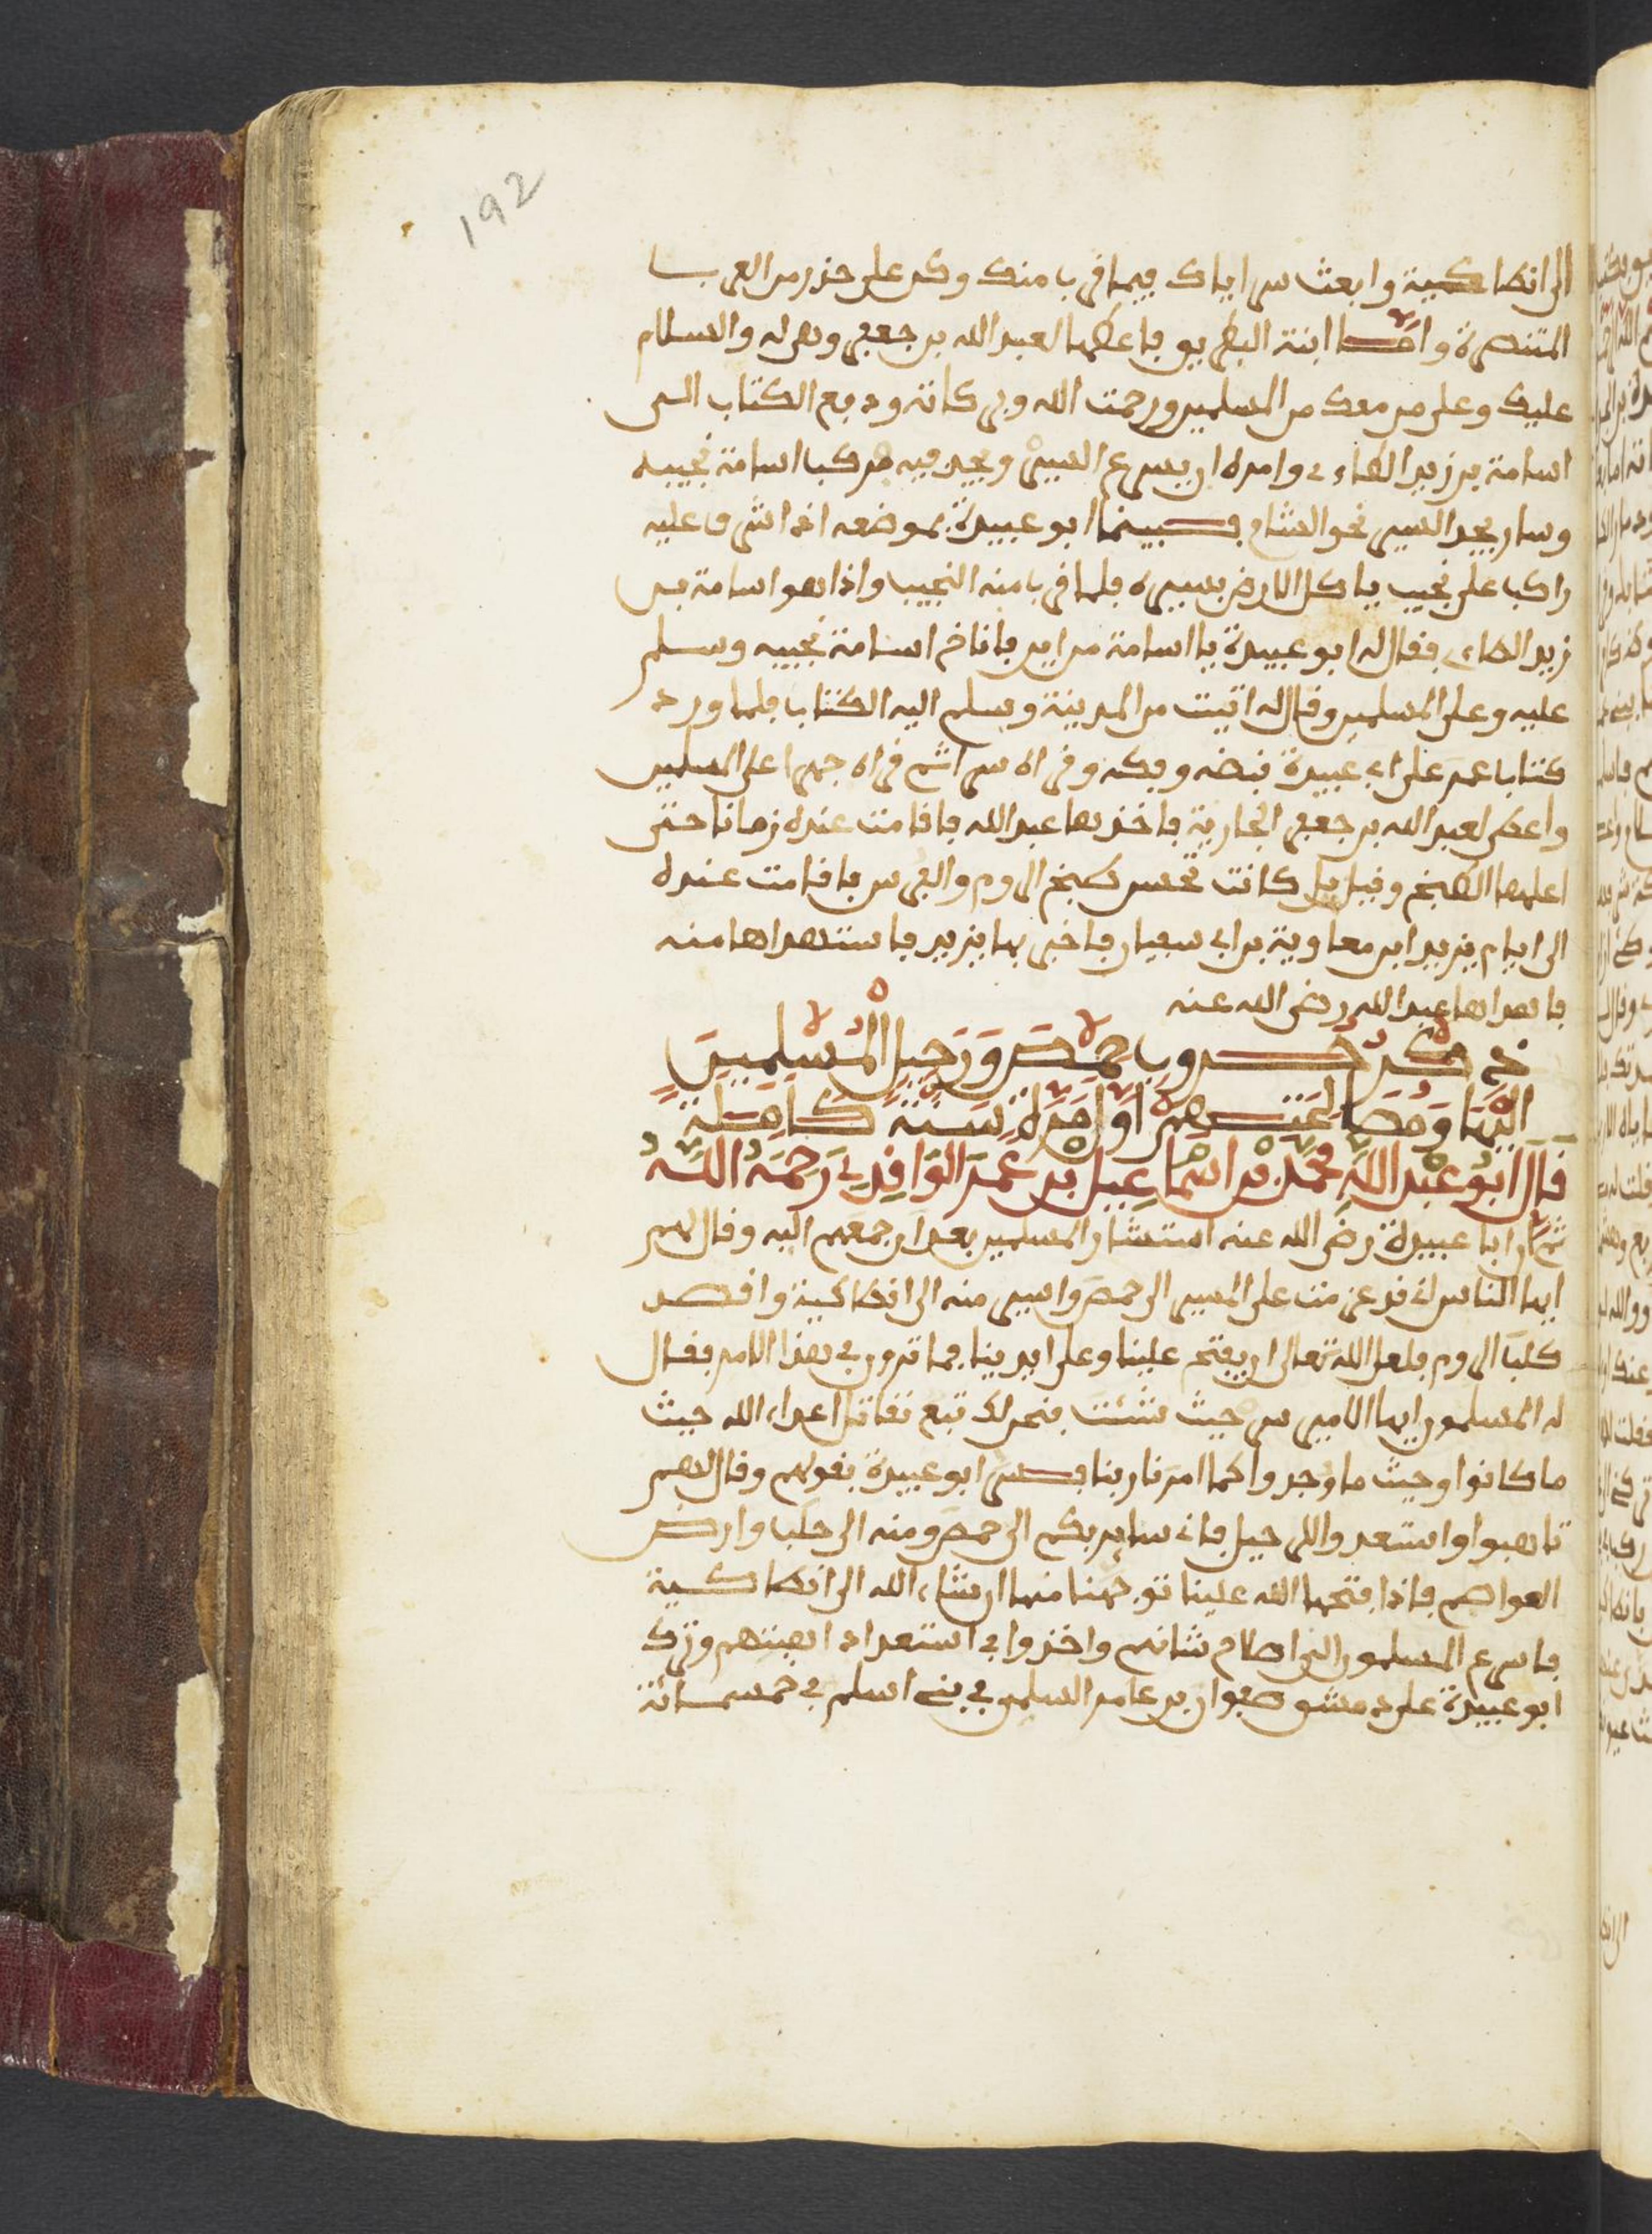 192
الى انطاكية وابعث سراياك فيما قرب منك وكن على حذر من العرب
المتنصرة واما ابنة البطريق فاعطها لعبد الله بن جعفر وهى له والسلام
عليك وعلى من معك من المسلمين ورحمت الله وبركاته ودفع الكتاب الى
اسامة بن زيد الطاءى وامره ان يسرع السير ويجد فيه فركب اسامة نجيبه
وسار يجد السير نحو الشام فبينما ابو عبيدة بموضعه اذ اشرف عليه
راكب على نجيب ياكل الارض بسيره فلما قرب منه النجيب واذا هو اسامة بن
زيد الطاءى فقال له ابو عبيدة يا اسامة من اين فاناخ اسامة نجيبه وسلم
عليه وعلى المسلمين وقال له اتيت من المدينة وسلم اليه الكتاب فلما ورد
كتاب عمر على ابى عبيدة قبضه وفكه وقراه سرا ثم قراه جهرا على المسلمين
واعطى لعبد الله بن جعفر الجارية فاخذها عبد الله فاقامت عنده زمانا حتى
اعلمها الطبخ وقيل بل كانت تحسن طبخ الروم والفرس فاقامت عنده
الى ايام يزيد ابن معاوية بن ابى سفيان فاخبر بها يزيد فاستهداها منه
فاهداها عبد الله رضى الله عنه
ذكر حروب حمص ورحيل المسلمين
اليها ومصالحتهم اول مرة سنة كاملة
قال ابو عبد الله محمد بن اسماعيل بن عمر الواقدي رحمه الله
ثم ان ابا عبيدة رضى الله عنه استشار المسلمين بعد ان جمعهم اليه وقال لهم
ايها الناس انى قد عزمت على المسير الى حمص واسير منه الى انطاكية واقصد
كلب الروم فلعل الله تعالى ان يفتح علينا وعلى ايدينا فما ترون فى هذا الامر فقال
له المسلمون ايها الامير سر حيث شئت فنحن لك تبع نقاتل اعداء الله حيث
ما كانوا وحيث ما وجدوا كما امرنا ربنا فسر ابو عبيدة بقولهم وقال لهم
تاهبوا واستعدوا للرحيل فانى ساير بكم الى حمص ومنه الى حلب وارض
العواصم فاذا فتحها الله علينا توجهنا منها ان شاء الله الى انطاكية
فاسرع المسلمون الى اصلاح شانهم واخذوا فى استعداد اهبتهم وترك
ابو عبيدة على دمشق صفوان بن عامر السلمى فى بنى اسلم فى خمسمائة